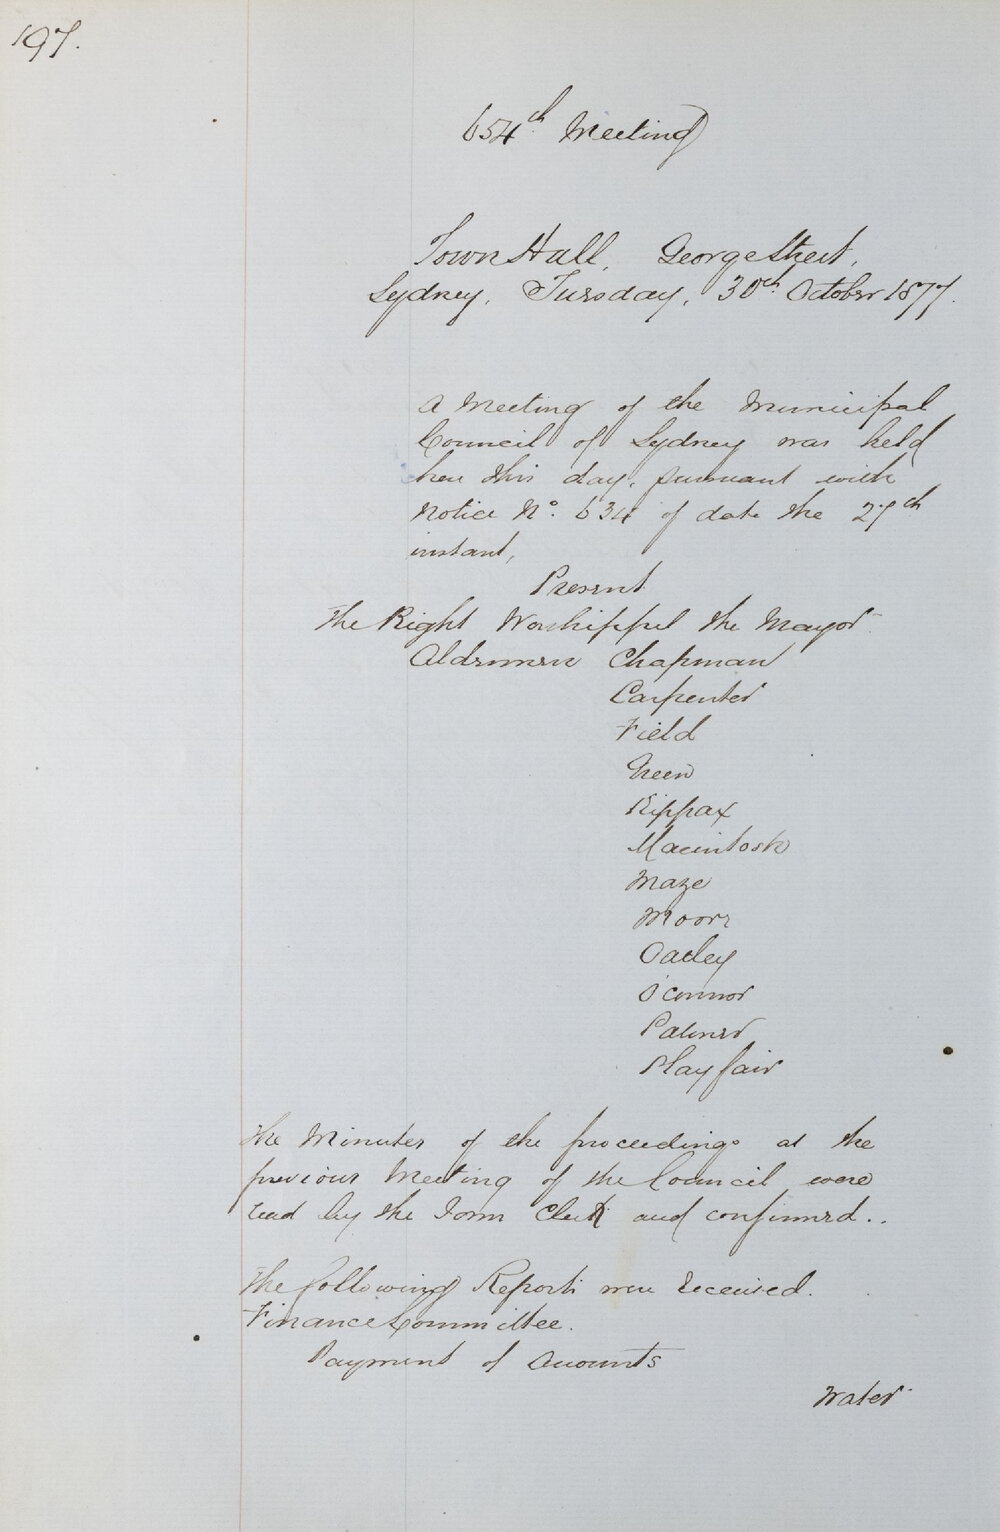 197.
654th Meeting
Town Hall, George Street,
Sydney, Tuesday, 30th October 1877.
A Meeting of the Municipal
Council of Sydney was held
here this day, pursuant with
Notice No. 634 of date the 27th
instant,
Present
The Right Worshipful the Mayor
Aldermen Chapman
Carpenter
Field
Green
Kippax
Macintosh
Maze
Moore
Oatley
O'Connor
Palmer
Playfair
The Minutes of the proceedings at the
previous Meeting of the Council were
read by the Town Clerk and confirmed..
The following Reports were received.
Finance Committee.
Payment of Accounts
Water